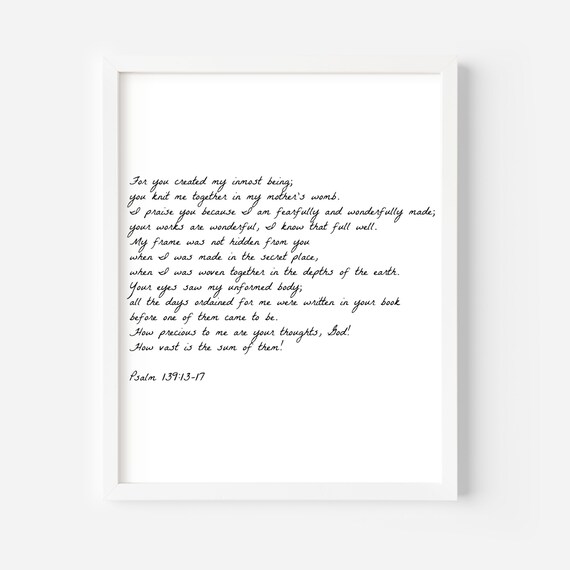 For you created my inmost being;
you knit me together in my mother's womb.
I praise you because I am fearfully and wonderfully made;
your works are wonderful, I know that full well.
My frame was not hidden from you
when I was made in the secret place,
when I was woven together in the depths of the earth.
Your eyes saw my unformed body;
all the days ordained for me were written in your book
before one of them came to be.
How precious to me are your thoughts, God!
How vast is the sum of them!
Psalm 139:13-17